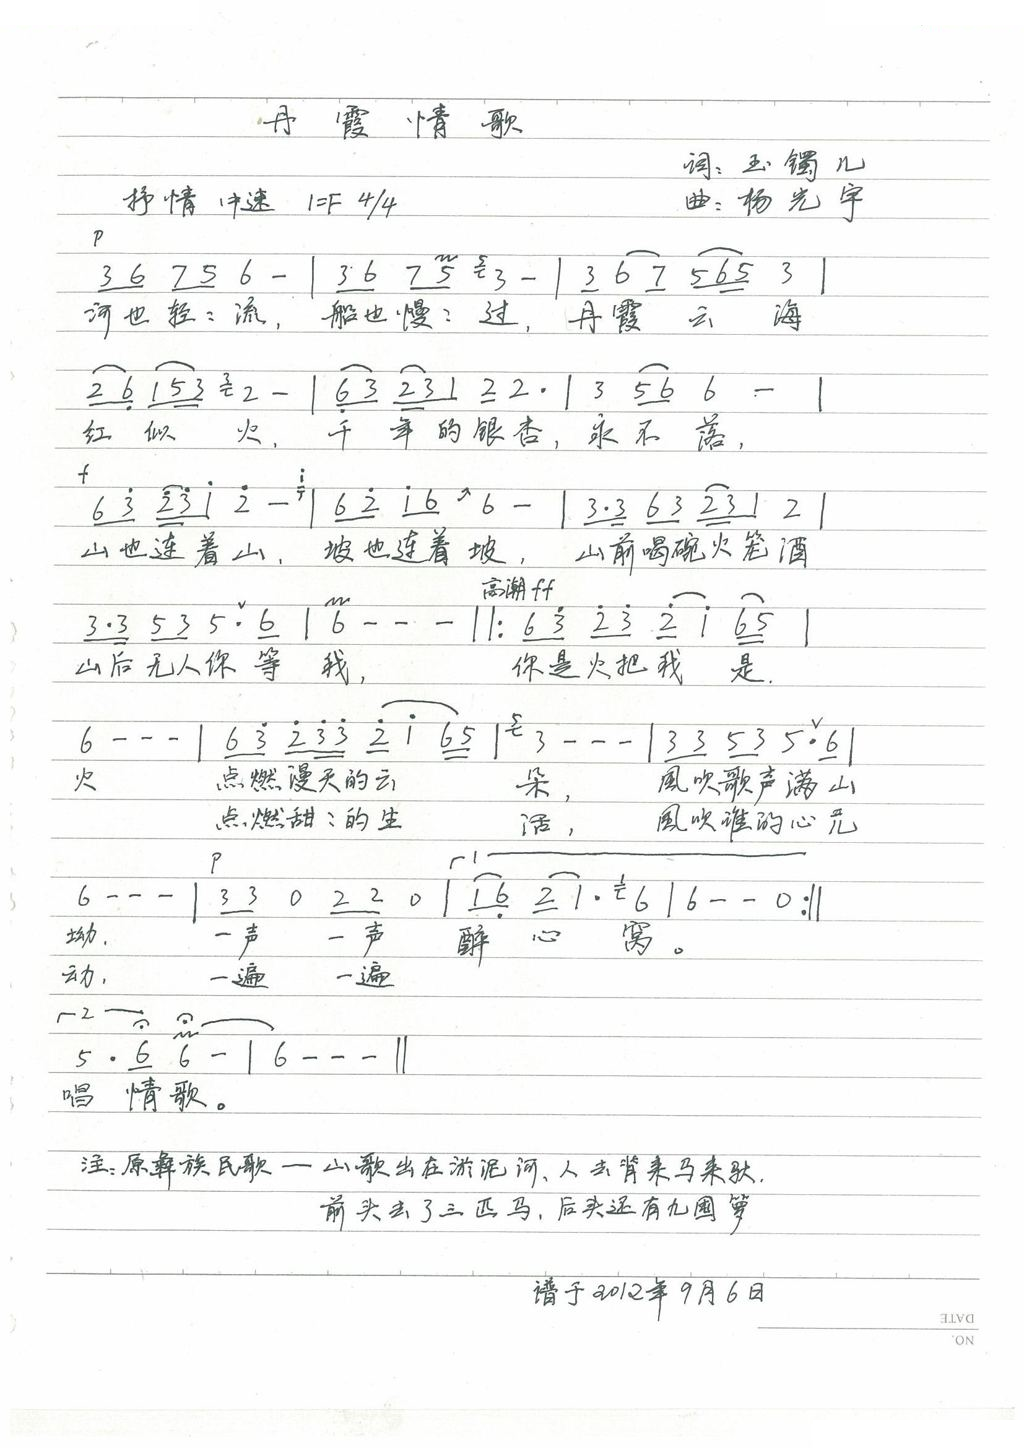 丹霞情歌
词：玉镯儿
抒情 中速 1=F 4/4
曲：杨光宇
p
3 6 7 5 6 - | 3 6 7 5 3 - | 3 6 7 5 6 5 3 |
河也轻：流， 船也慢：过， 丹霞 云 海
2 6 1 5 3 2 - | 6 3 2 3 1 2 2 · | 3 5 6 6 - |
红似 火， 千年的银杏，永不落，
f
6 3 2 3 1 2 - | 6 2 1 6 6 - | 3 · 3 6 3 2 3 1 2 |
山也连着山， 坡也连着坡， 山前喝碗火笼酒
高潮 ff
3 · 3 5 3 5 · 6 | 6 - - - ||: 6 3 2 3 2 1 6 5 |
山后无人你等我， 你是火把我是.
6 - - - | 6 3 2 3 3 2 1 6 5 | 3 - - - | 3 3 5 3 5 · 6 |
火 点燃漫天的云 朵， 風吹歌声满山
点燃甜：的生 活， 風吹谁的心儿
p
1
6 - - - | 3 3 0 2 2 0 | 1 6 2 1 · 6 | 6 - - 0 :||
坳， 一声 一声 醉心窝。
动， 一遍 一遍
2
5 · 6 6 - | 6 - - - ||
唱 情歌。
注：原彝族民歌一山歌出在淤泥河、人去背来马来驮.
前头去了三匹马，后头还有九囤箩
谱于2012年9月6日
DATE
NO.